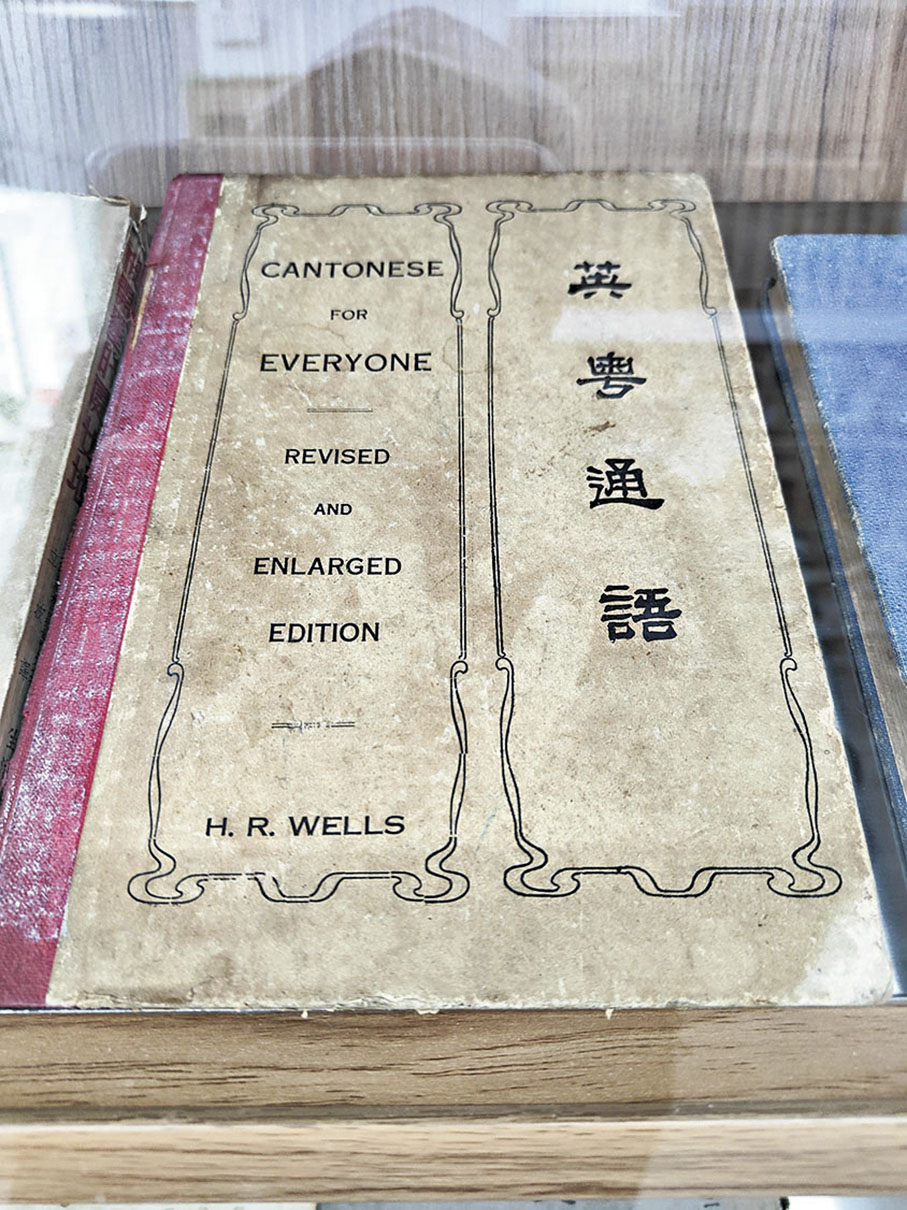 CANTONESE
FOR
EVERYONE
REVISED
AND
ENLARGED
EDITION
H. R. WELLS
英粵通語